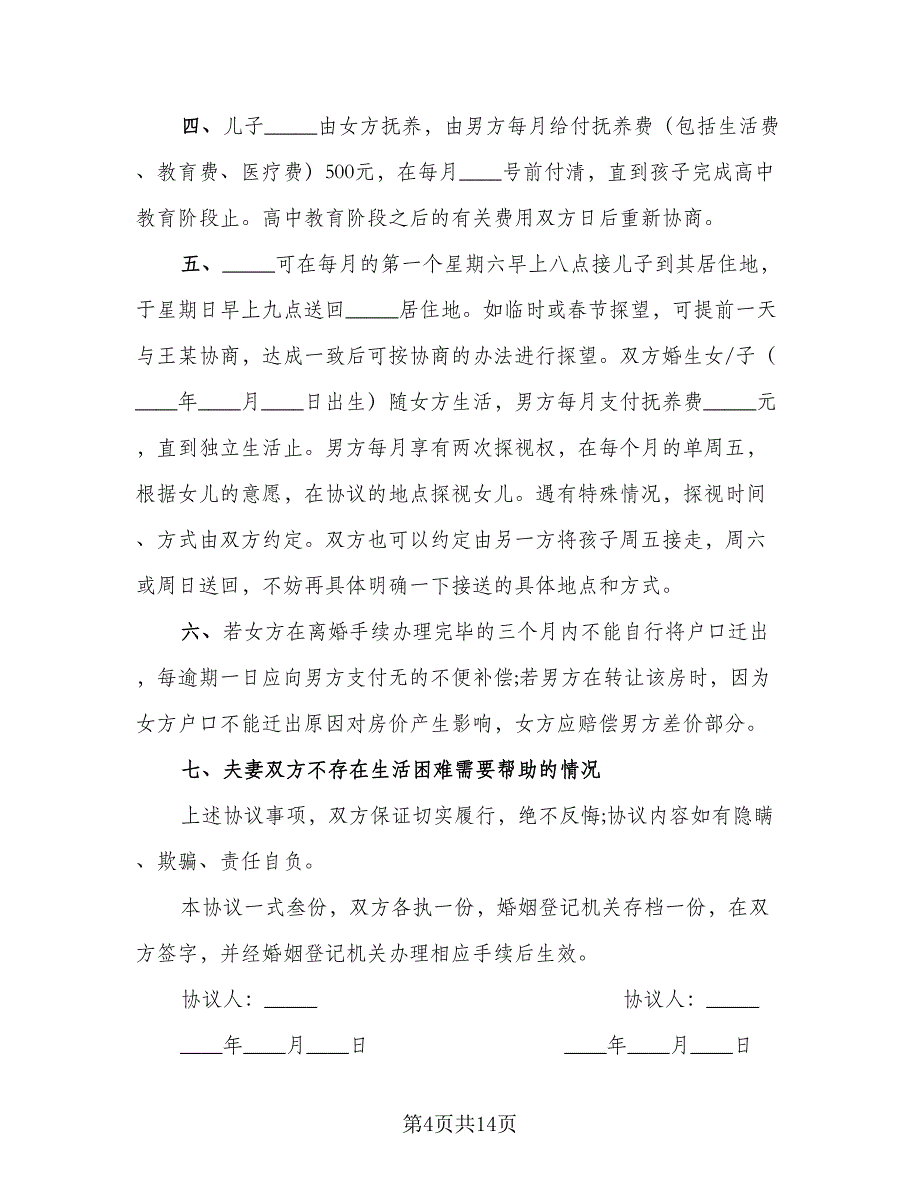 四、儿子_____由女方抚养，由男方每月给付抚养费（包括生活费
、教育费、医疗费）500元，在每月____号前付清，直到孩子完成高中
教育阶段止。高中教育阶段之后的有关费用双方日后重新协商。
五、_____可在每月的第一个星期六早上八点接儿子到其居住地，
于星期日早上九点送回_____居住地。如临时或春节探望，可提前一天
与王某协商，达成一致后可按协商的办法进行探望。双方婚生女/子（
____年____月____日出生）随女方生活，男方每月支付抚养费_____元
，直到独立生活止。男方每月享有两次探视权，在每个月的单周五，
根据女儿的意愿，在协议的地点探视女儿。遇有特殊情况，探视时间
、方式由双方约定。双方也可以约定由另一方将孩子周五接走，周六
或周日送回，不妨再具体明确一下接送的具体地点和方式。
六、若女方在离婚手续办理完毕的三个月内不能自行将户口迁出
，每逾期一日应向男方支付无的不便补偿;若男方在转让该房时，因为
女方户口不能迁出原因对房价产生影响，女方应赔偿男方差价部分。
七、夫妻双方不存在生活困难需要帮助的情况
上述协议事项，双方保证切实履行，绝不反悔;协议内容如有隐瞒
、欺骗、责任自负。
本协议一式叁份，双方各执一份，婚姻登记机关存档一份，在双
方签字，并经婚姻登记机关办理相应手续后生效。
协议人：_____ 协议人：_____
____年____月____日 ____年____月____日
第4页共14页